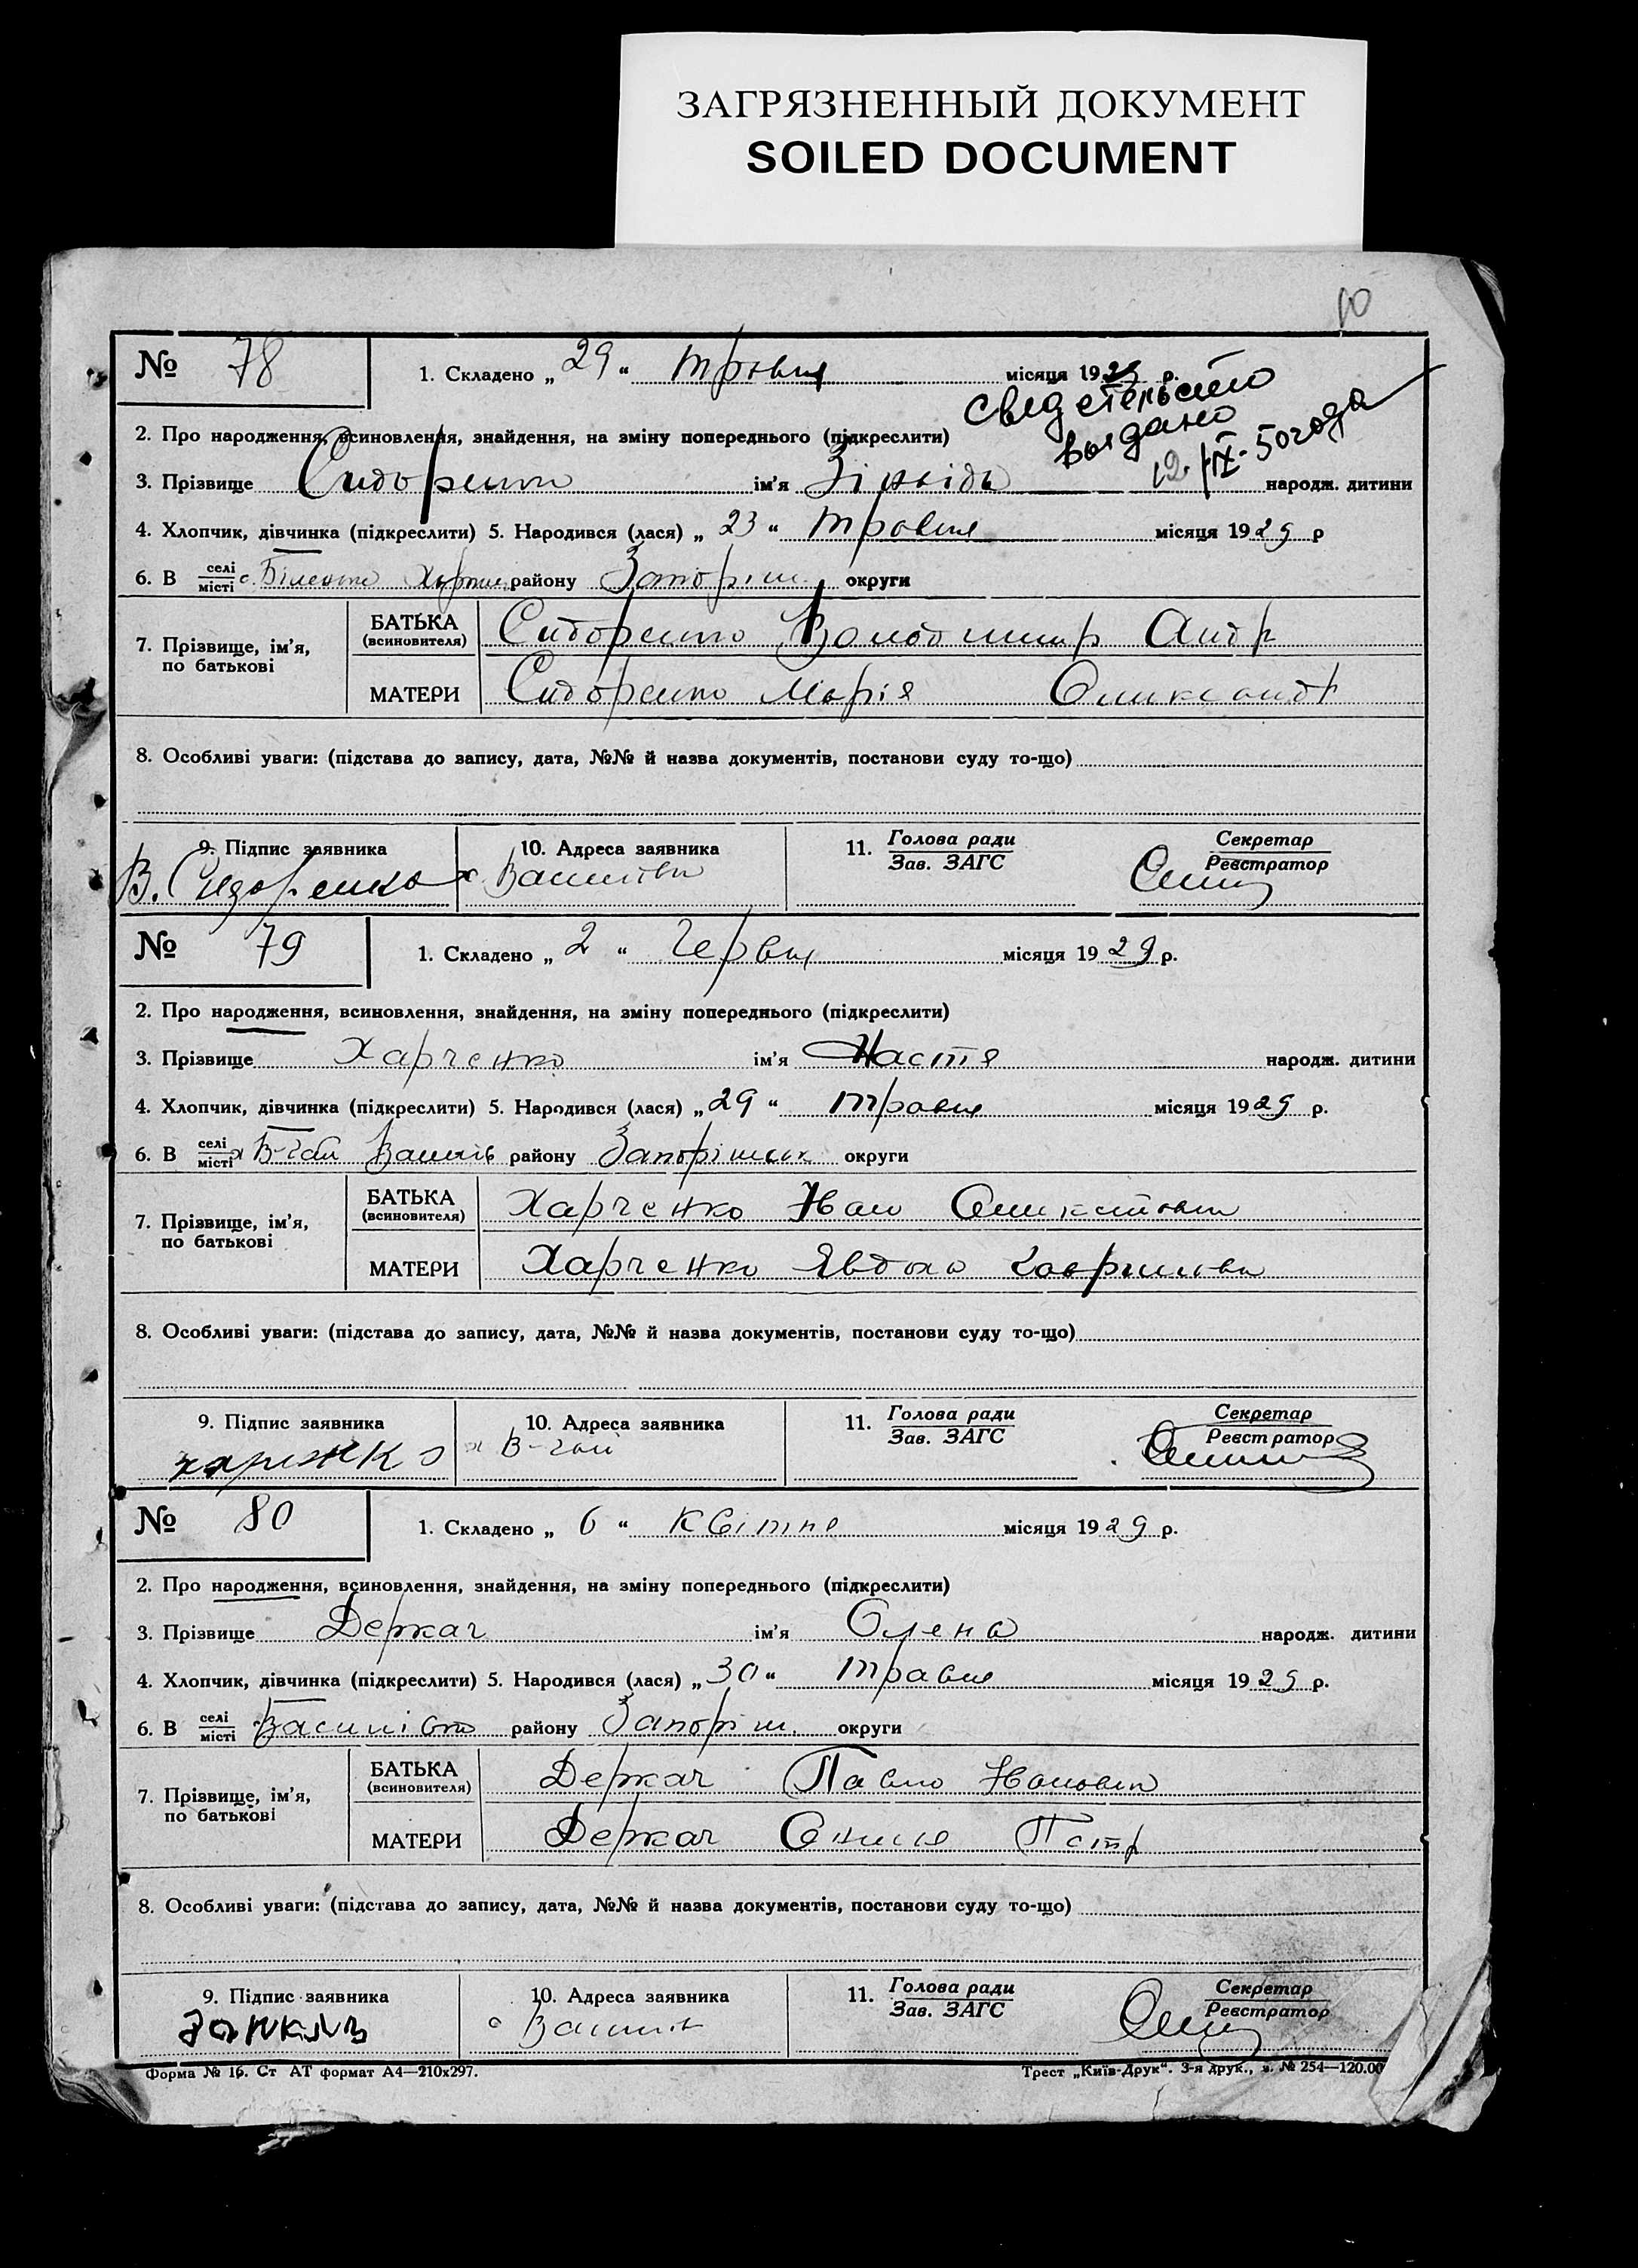 ЗАГРЯЗНЕННЫЙ ДОКУМЕНТ
SOILED DOCUMENT
10
№ 78 1. Складено „ 29 “ травня місяця 1929 р.
свидетельство
выдано
12/IX-50 года
2. Про народження, всиновлення, знайдення, на зміну попереднього (підкреслити)
3. Прізвище Сидоренко ім'я Зінаіда народж. дитини
4. Хлопчик, дівчинка (підкреслити) 5. Народився (лася) „ 23 “ травня місяця 1929 р
6. В селі/місті с. Біленьке району Запоріж. округи
7. Прізвище, ім'я, по батькові
БАТЬКА (всиновителя) Сидоренко Володимир Андр
МАТЕРИ Сидоренко Марія Олександр
8. Особливі уваги: (підстава до запису, дата, №№ й назва документів, постанови суду то-що)
9. Підпис заявника 10. Адреса заявника 11. Голова ради/Зав. ЗАГС Секретар/Реєстратор
В. Сидоренко
№ 79 1. Складено „ 2 “ Червня місяця 1929 р.
2. Про народження, всиновлення, знайдення, на зміну попереднього (підкреслити)
3. Прізвище Харченко ім'я Настя народж. дитини
4. Хлопчик, дівчинка (підкреслити) 5. Народився (лася) „ 29 “ травня місяця 1929 р.
6. В селі/місті х В-гай Василів району Запоріжськ округи
7. Прізвище, ім'я, по батькові
БАТЬКА (всиновителя) Харченко Иван
МАТЕРИ Харченко Явдоха Гаврилова
8. Особливі уваги: (підстава до запису, дата, №№ й назва документів, постанови суду то-що)
9. Підпис заявника 10. Адреса заявника 11. Голова ради/Зав. ЗАГС Секретар/Реєстратор
х В-гай
№ 80 1. Складено „ 6 “ Квітня місяця 1929 р.
2. Про народження, всиновлення, знайдення, на зміну попереднього (підкреслити)
3. Прізвище Деркач ім'я Олена народж. дитини
4. Хлопчик, дівчинка (підкреслити) 5. Народився (лася) „ 30 “ травня місяця 1929 р.
6. В селі/місті Василівка району Запоріж. округи
7. Прізвище, ім'я, по батькові
БАТЬКА (всиновителя) Деркач Павло Иванович
МАТЕРИ Деркач Петр
8. Особливі уваги: (підстава до запису, дата, №№ й назва документів, постанови суду то-що)
9. Підпис заявника 10. Адреса заявника 11. Голова ради/Зав. ЗАГС Секретар/Реєстратор
с Василів
Форма № 16. Ст АТ формат А4—210x297. Трест „Київ-Друк“. 3-я друк., з. № 254—120.00